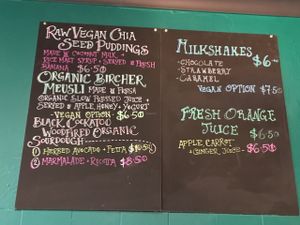 RAW VEGAN CHIA
SEED PUDDINGS
MADE W COCONUT MILK +
RICE MALT SYRUP + SERVED W FRESH
BANANA $6.50
ORGANIC BIRCHER
MEUSLI MADE W
ORGANIC SLOW PRESSED JUICE
SERVED W APPLE, HONEY + YOGURT
-VEGAN OPTION- $6.50
BLACK COCKATOO
WOODFIRED ORGANIC
SOURDOUGH
① HERBED AVOCADO + FETTA $10.50
② MARMALADE + RICOTTA $8.50
MILKSHAKES $6
- CHOCOLATE
- STRAWBERRY
- CARAMEL
VEGAN OPTION $7.50
FRESH ORANGE
JUICE $6.50
APPLE, CARROT
+ GINGER JUICE - $6.50